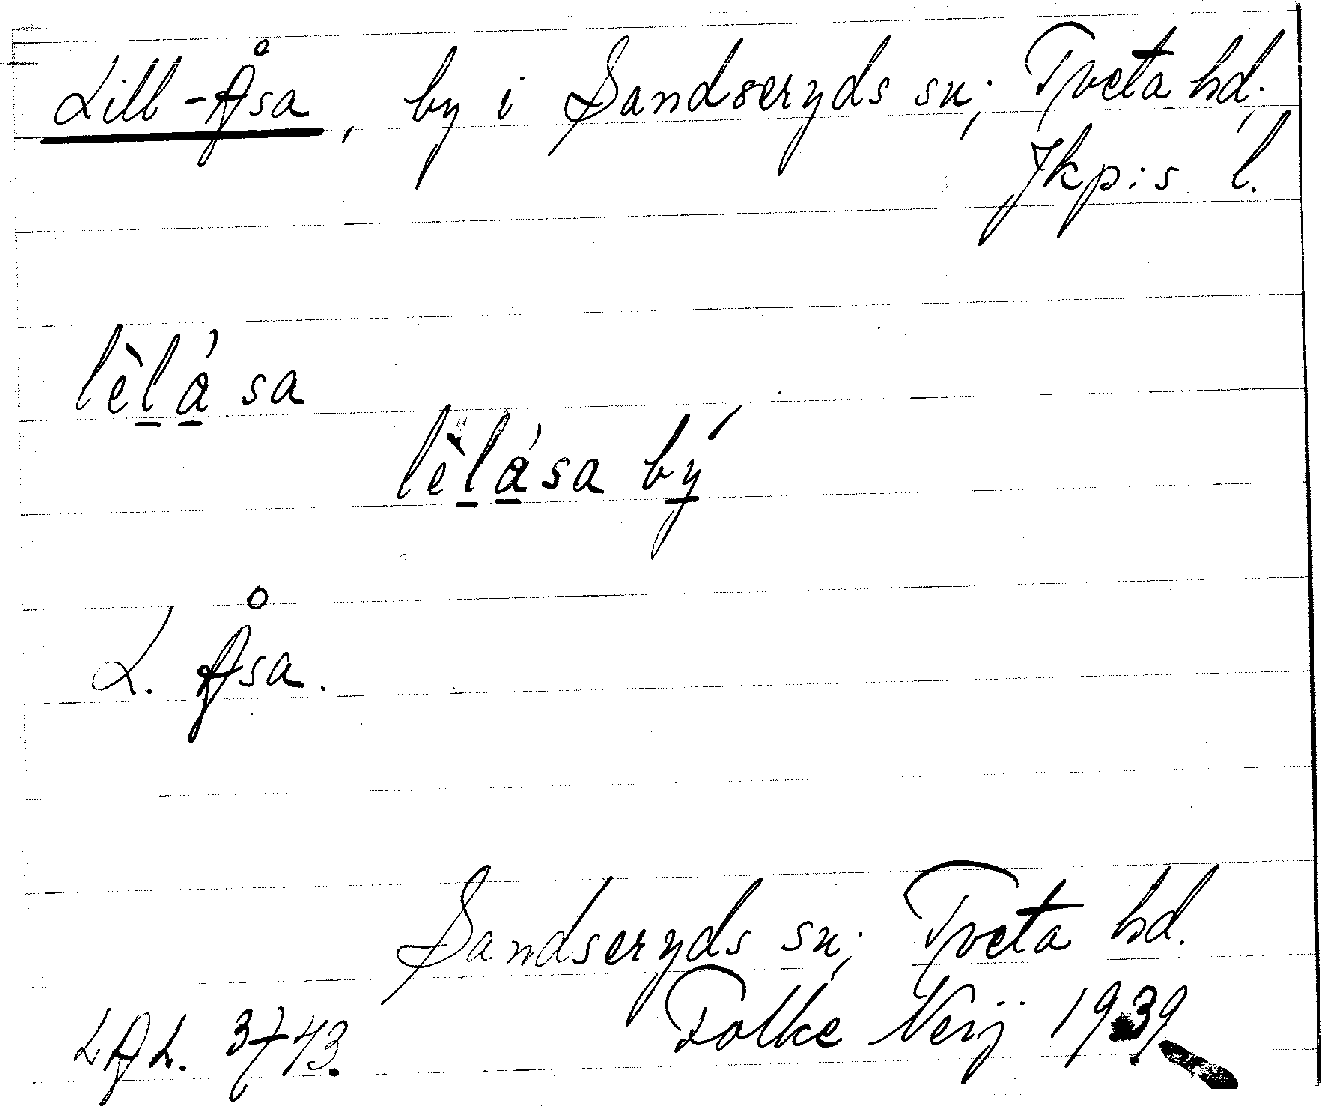 Lill-Åsa, by i Sandseryds sn; Tveta hd.
Jkp:s l.
lèlá sa
lèlása bý
L. Åsa.
Sandseryds sn; Tveta hd.
LAL. 3743. Folke Neij 1939